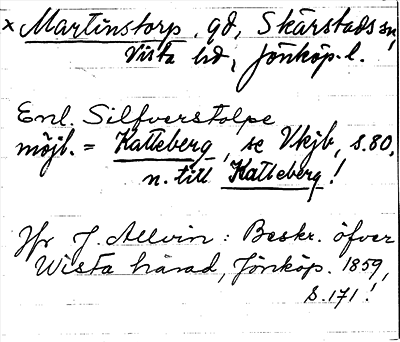 x Martinstorp, gd, Skärstads sn,
Vista hd, Jönköp. l.
Enl. Silfverstolpe
möjl. = Katteberg, se Vkjb, s. 80,
n. till Katteberg!
Jfr J. Allvin: Beskr. öfver
Wista härad, Jönköp. 1859,
s. 171!